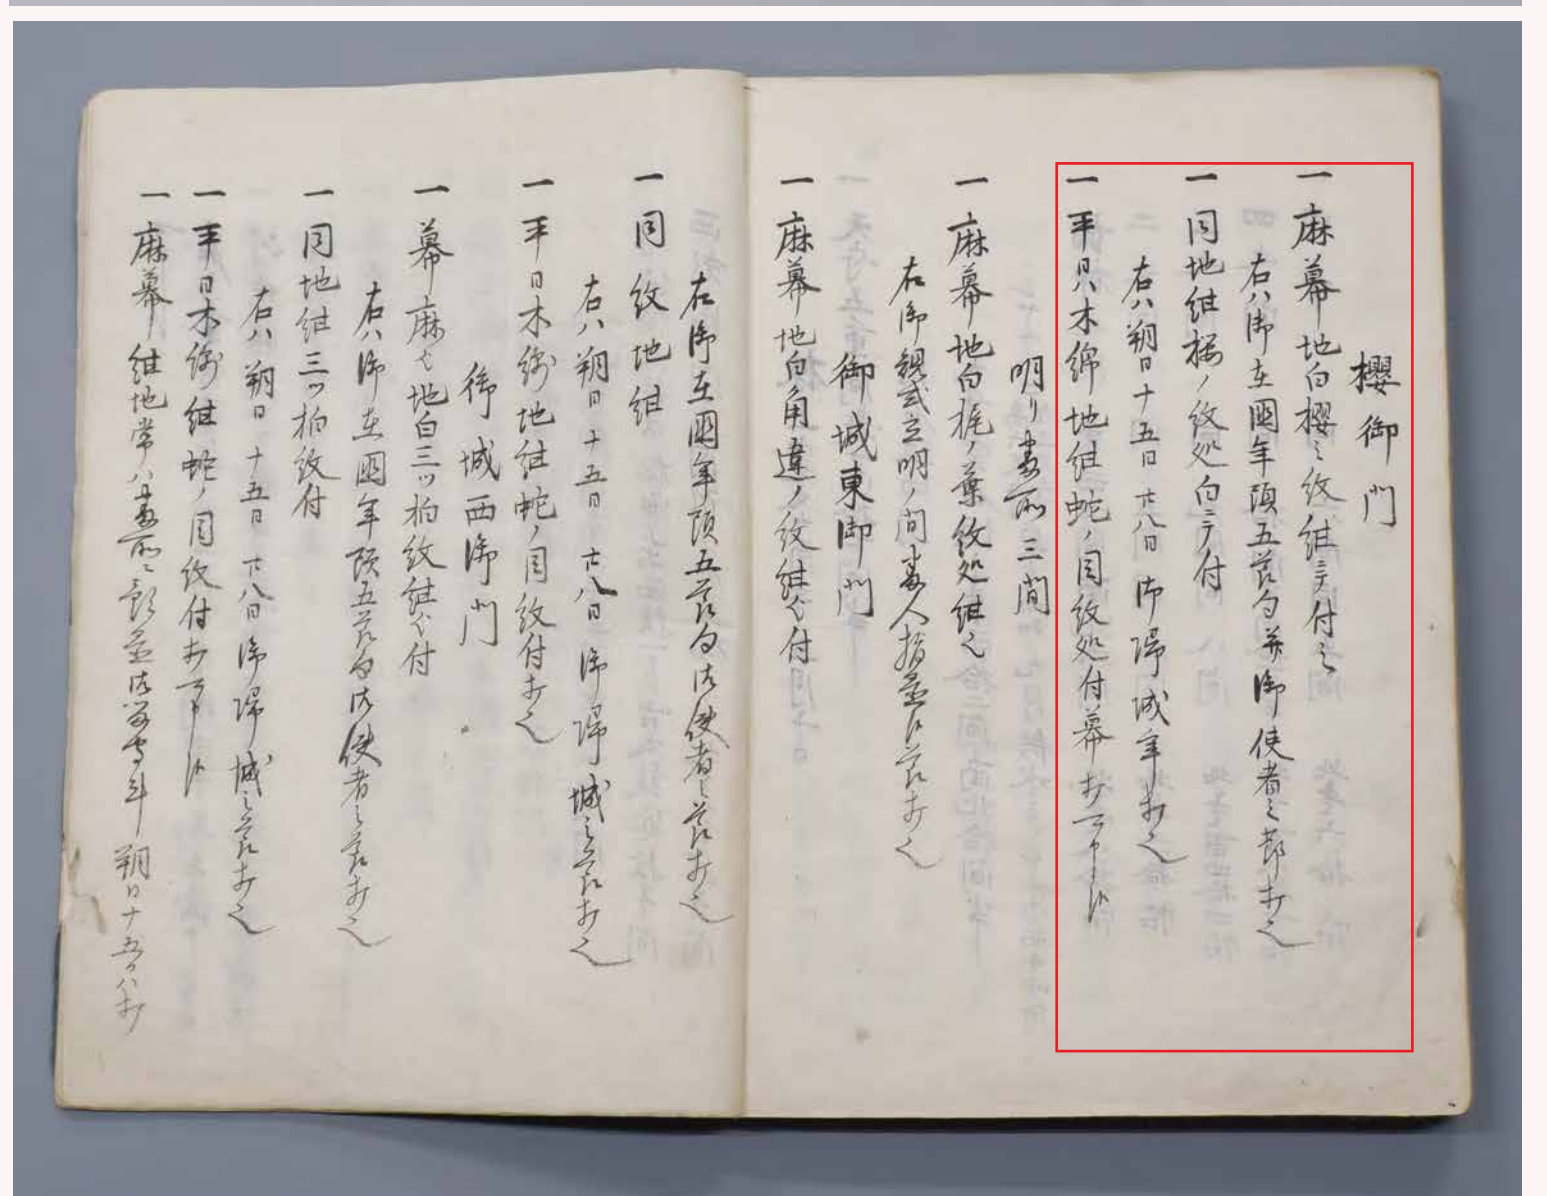 櫻御門
一 麻幕地白櫻之紋紺ニテ付之
右ハ御在國年頭五節句并御使者之節打之
一 同地紺桜ノ紋処白ニテ付
右ハ朔日十五日廿八日御帰城年打之
一 平日ハ木綿地紺蛇ノ目紋処付幕打可申候
明り番所三間
一 麻幕地白梶ノ葉紋処紺之
右御規式立明ノ間番人指置候節打之
御城東御門
一 麻幕地白角違ノ紋紺ニて付
右御在國年頭五節句御使者之節打之
一 同紋地紺
右ハ朔日十五日廿八日御帰城之節打之
一 平日木綿地紺蛇ノ目紋付打之
御城西御門
一 幕麻ニて地白三ツ柏紋紺ニて付
右ハ御在國年頭五節句御使者之節打之
一 同地紺三ツ柏紋付
右ハ朔日十五日廿八日御帰城之節打之
一 平日木綿紺蛇ノ目紋付打可申候
一 麻幕紺地常ハ番所ニ 朔日十五日ハ打